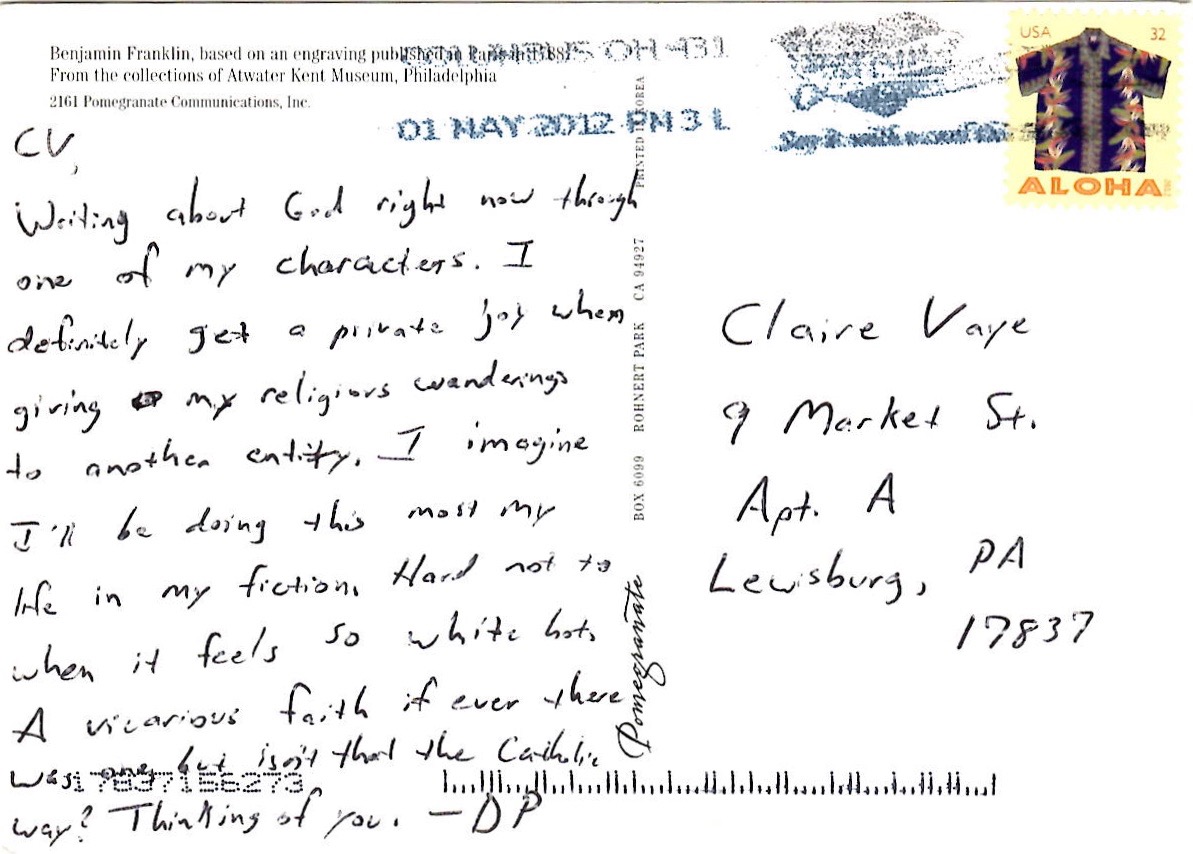 Benjamin Franklin, based on an engraving published in Paris in 1788.
From the collections of Atwater Kent Museum, Philadelphia
2161 Pomegranate Communications, Inc.
OH 431
01 MAY 2012 PM 3 L
USA 32
ALOHA
CV,
Writing about God right now through
one of my characters. I
definitely get a private joy when
giving my religious wanderings
to another entity. I imagine
I'll be doing this most my
life in my fiction. Hard not to
when it feels so white hot.
A vicarious faith if ever there
was one, but isn't that the Catholic
way? Thinking of you. —DP
17837156273
Pomegranate BOX 6099 ROHNERT PARK CA 94927 PRINTED IN KOREA
Claire Vaye
9 Market St.
Apt. A
Lewisburg, PA
17837